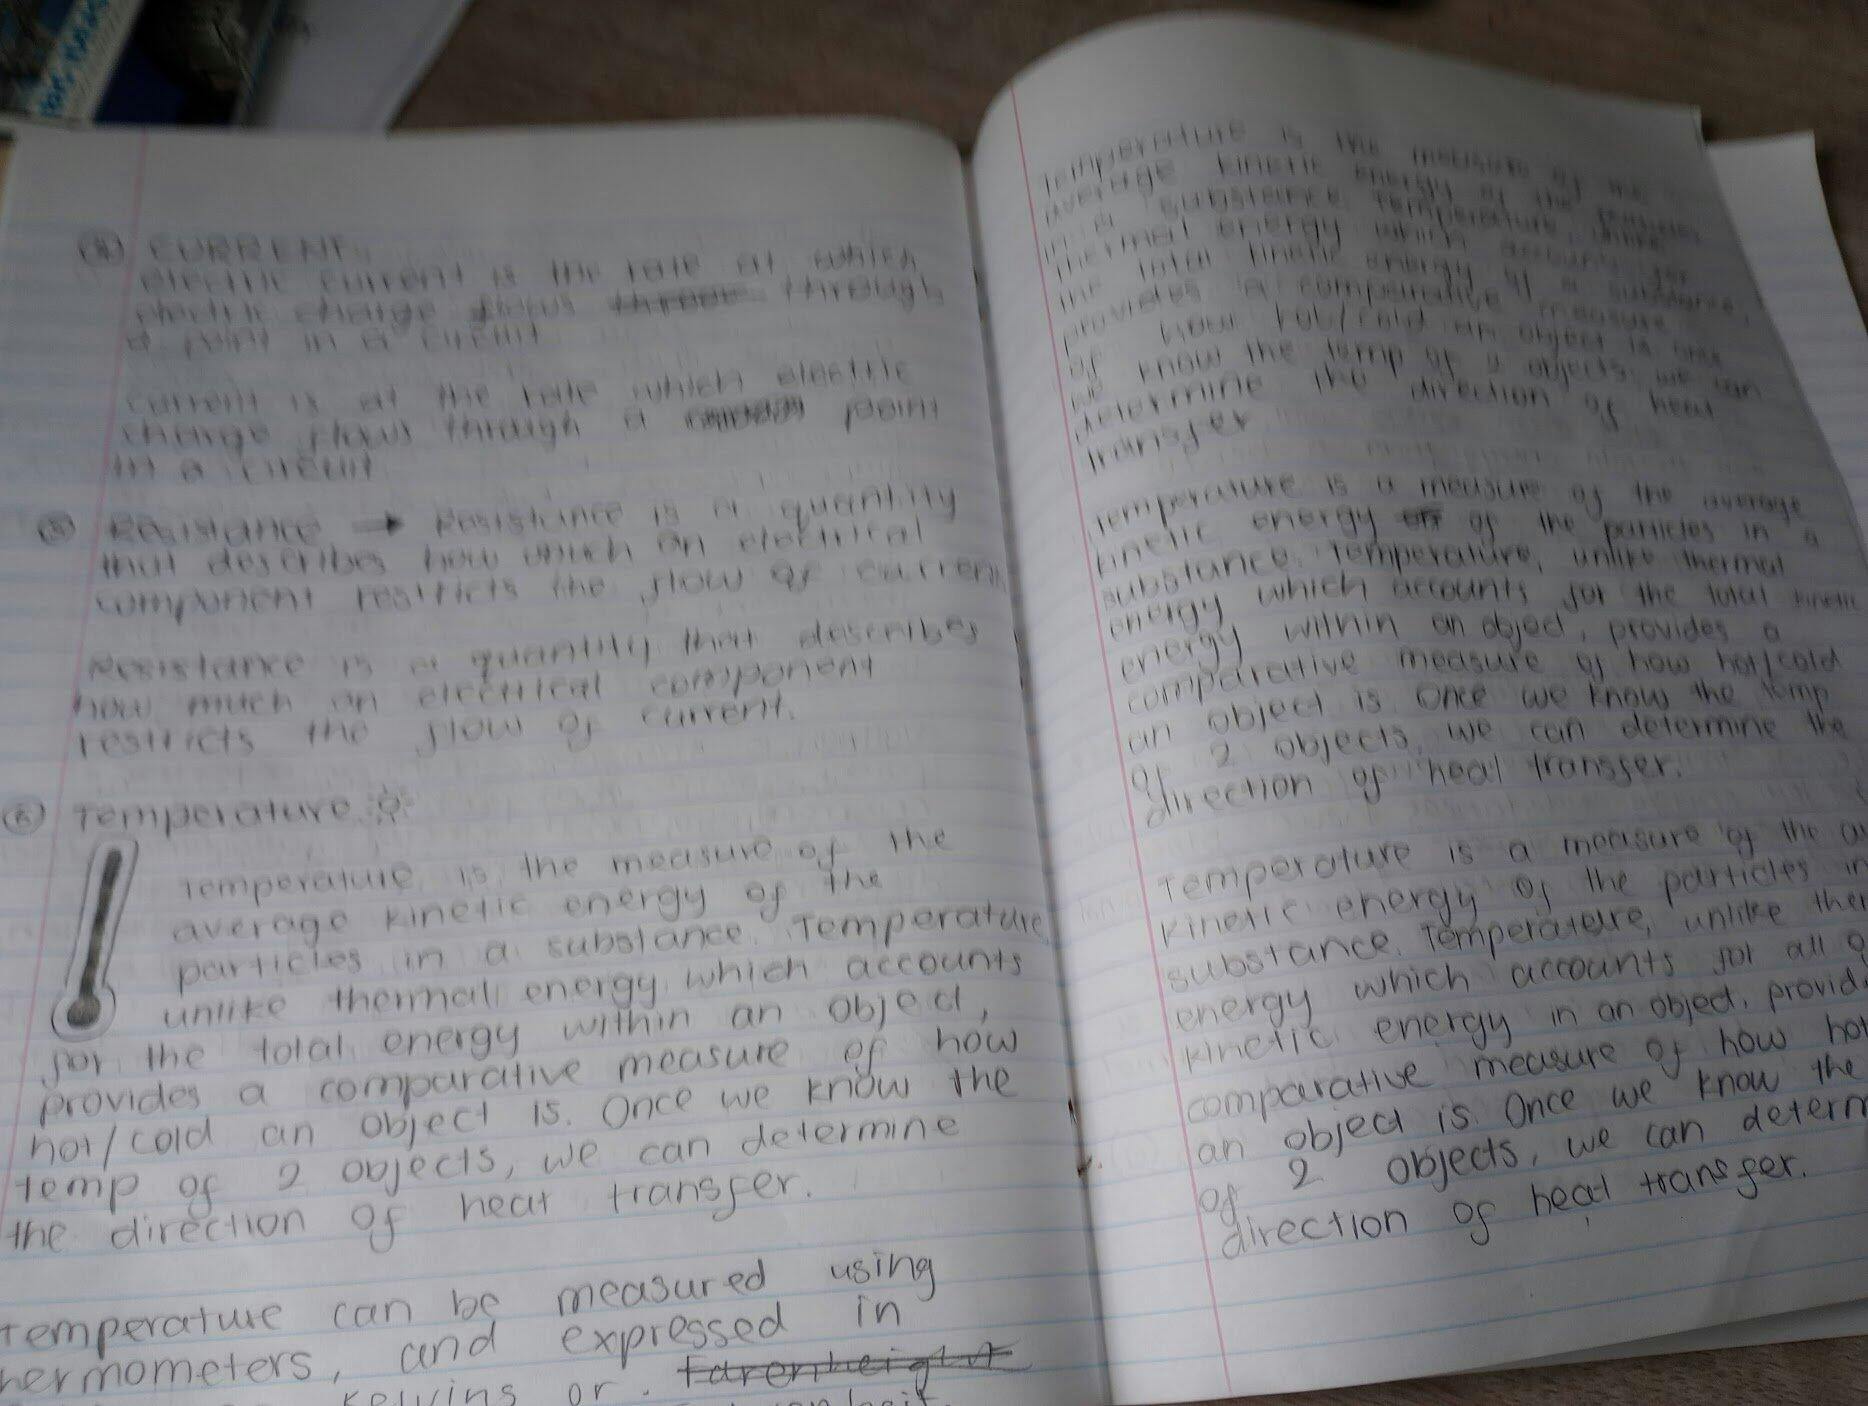 ④ CURRENT:
electric current is the rate at which
electric charge flows through
a point in a circuit
Current is at the rate which electric
charge flows through a point
in a circuit
⑤ Resistance → Resistance is a quantity
that describes how much an electrical
component restricts the flow of current
Resistance is a quantity that describes
how much an electrical component
restricts the flow of current.
⑥ Temperature
Temperature is the measure of the
average kinetic energy of the
particles in a substance. Temperature
unlike thermal energy which accounts
for the total energy within an object,
provides a comparative measure of how
hot/cold an object is. Once we know the
temp of 2 objects, we can determine
the direction of heat transfer.
Temperature can be measured using
hermometers, and expressed in
kelvins or farenheight
Temperature is the measure of the
average kinetic energy of the particles
in a substance. Temperature, unlike
thermal energy which accounts for
the total kinetic energy of a substance,
provides a comparative measure
of how hot/cold an object is once
we know the temp of 2 objects, we can
determine the direction of heat
transfer
Temperature is a measure of the average
kinetic energy of the particles in a
substance. Temperature, unlike thermal
energy which accounts for the total kinetic
energy within an object, provides a
comparative measure of how hot/cold
an object is. Once we know the temp
of 2 objects, we can determine the
direction of heat transfer.
Temperature is a measure of the
kinetic energy of the particles in
substance. Temperature, unlike ther
energy which accounts for all
kinetic energy in an object, provid
comparative measure of how hot
an object is. Once we know the
of 2 objects, we can determ
direction of heat transfer.